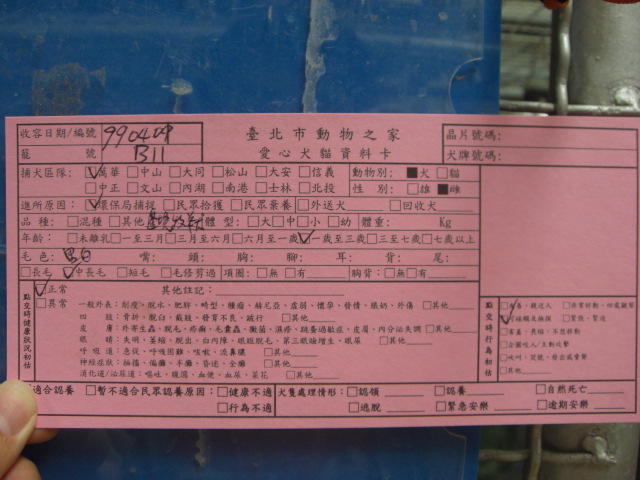 收容日期/編號 990409
籠 號 B11
臺北市動物之家
愛心犬貓資料卡
晶片號碼:
犬牌號碼:
捕犬區隊: ☑萬華 □中山 □大同 □松山 □大安 □信義 動物別: ■犬 □貓
□中正 □文山 □內湖 □南港 □士林 □北投 性 別: □雄 ■雌
進所原因: ☑環保局捕捉 □民眾拾獲 □民眾棄養 □外送犬 □回收犬
品 種: □混種 □其他 體 型: □大 □中 □小 □幼 體重: Kg
年齡: □未離乳 □一至三月 □三月至六月 □六月至一歲 ☑一歲至三歲 □三至七歲 □七歲以上
毛 色: 黑白 嘴: 頭: 胸: 腳: 耳: 背: 尾:
□長毛 ☑中長毛 □短毛 □毛修剪過 項圈: □無 □有 胸背: □無 □有
點交時健康狀況初估
☑正常 其他註記:
□異常 一般外表: 削瘦、脫水、肥胖、畸型、腫瘤、赫尼亞、虛弱、懷孕、發情、眼奶、外傷 □其他
四 肢: 骨折、脫臼、截肢、發育不良、跛行 □其他
皮 膚: 外寄生蟲、脫毛、疥癬、毛囊蟲、黴菌、濕疹、跳蚤過敏症、皮屑、內分泌失調 □其他
眼 睛: 失明、萎縮、脫出、白內障、眼瞼脫毛、第三眼瞼增生、眼屎 □其他
呼吸道: 急促、呼吸困難、咳嗽、流鼻膿 □其他
神經症狀: 抽搐、偏癱、半癱、昏迷、全癱 □其他
消化道/泌尿道: 嘔吐、腹瀉、血便、血尿、菜花 □其他
點交時行為初估
□友善、親近人 □非常好動、四處亂竄
☑可接觸及撫摸 □緊張、緊迫
□害羞、畏縮、不想移動
□企圖咬人/主動攻擊
□吠叫、低吼、發出威脅聲
□其他
□適合認養 □暫不適合民眾認養原因: □健康不適 □行為不適
犬隻處理情形: □認領 □認養 □自然死亡
□逃脫 □緊急安樂 □逾期安樂